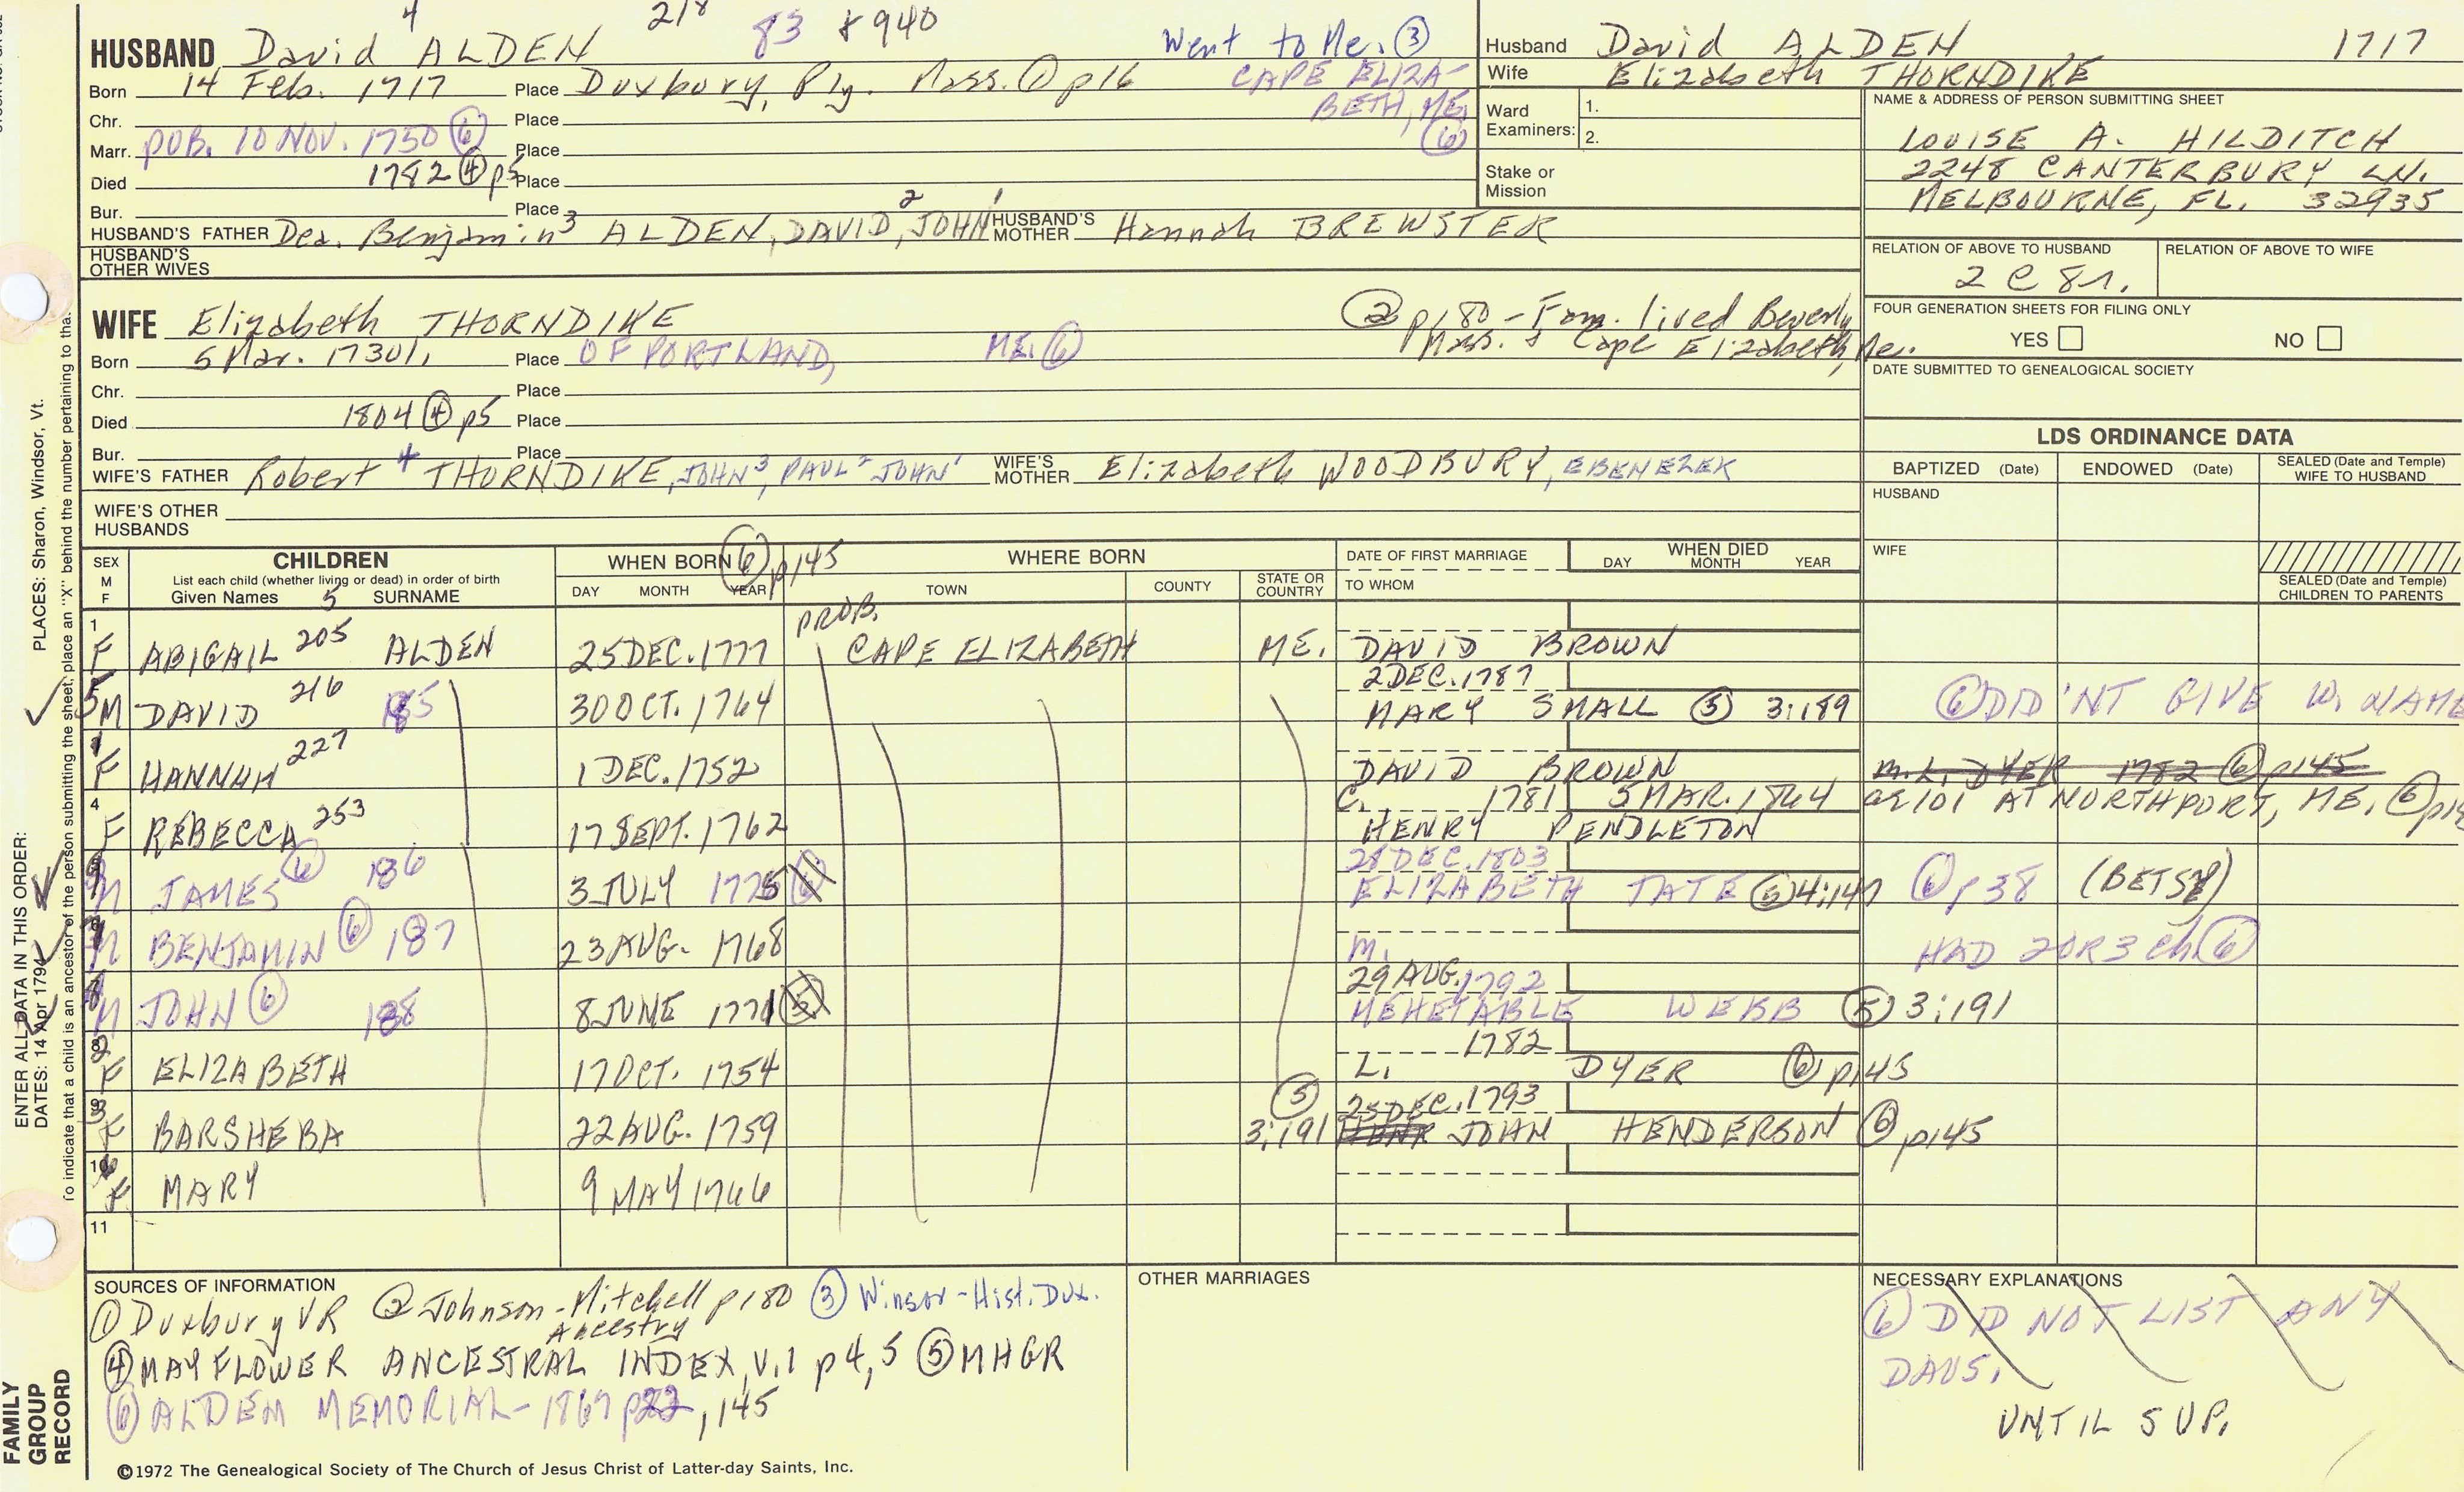 4 218 83 + 940
HUSBAND David ALDEN
Went to Me. ③
Born 14 Feb. 1717 Place Duxbury, Ply. Mass. ① p16
CAPE ELIZA-
BETH, ME.
⑥
Chr. Place
Marr. PUB. 10 NOV. 1750 ⑥ Place
Died 1782 ④ p5 Place
Bur. Place
HUSBAND'S FATHER Dea. Benjamin³ ALDEN, DAVID,² JOHN¹ HUSBAND'S MOTHER Hannah BREWSTER
HUSBAND'S OTHER WIVES
Husband David ALDEN 1717
Wife Elizabeth THORNDIKE
Ward Examiners: 1.
2.
Stake or Mission
NAME & ADDRESS OF PERSON SUBMITTING SHEET
LOUISE A. HILDITCH
2248 CANTERBURY LN.
MELBOURNE, FL. 32935
RELATION OF ABOVE TO HUSBAND RELATION OF ABOVE TO WIFE
2 C 8 r.
FOUR GENERATION SHEETS FOR FILING ONLY
YES NO
DATE SUBMITTED TO GENEALOGICAL SOCIETY
WIFE Elizabeth THORNDIKE
② p180 - Fam. lived Beverly
Mass. & Cape Elizabeth, Me.
Born 5 Mar. 1730/1, Place OF PORTLAND, ME. ⑥
Chr. Place
Died 1804 ④ p5 Place
Bur. Place
WIFE'S FATHER Robert⁴ THORNDIKE, JOHN³, PAUL² JOHN¹ WIFE'S MOTHER Elizabeth WOODBURY, EBENEZEK
WIFE'S OTHER HUSBANDS
LDS ORDINANCE DATA
BAPTIZED (Date) ENDOWED (Date) SEALED (Date and Temple) WIFE TO HUSBAND
HUSBAND
WIFE
SEALED (Date and Temple) CHILDREN TO PARENTS
SEX M F
CHILDREN
List each child (whether living or dead) in order of birth
Given Names 5 SURNAME
WHEN BORN ⑥ p145
DAY MONTH YEAR
WHERE BORN
TOWN COUNTY STATE OR COUNTRY
DATE OF FIRST MARRIAGE
TO WHOM
WHEN DIED
DAY MONTH YEAR
PROB.
1 F ABIGAIL 205 ALDEN 25 DEC. 1777 CAPE ELIZABETH ME. DAVID BROWN
2 DEC. 1787
5 M DAVID 216 185 30 OCT. 1764 MARY SMALL ⑤ 3:189 ⑥ DID'NT GIVE W. NAME
1 F HANNAH 227 1 DEC. 1752 DAVID BROWN m. L. DYER 1782 ⑥ p145
C. 1781 5 MAR. 1864 age 101 AT NORTHPORT, ME. ⑥
4 F REBECCA 253 17 SEPT. 1762 HENRY PENDLETON
28 DEC. 1803
M JAMES ⑥ 186 3 JULY 1775 ELIZABETH TATE ⑤ 4:147 ⑥ p38 (BETSY)
M BENJAMIN ⑥ 187 23 AUG. 1768 m. HAD 2 OR 3 ch. ⑥
29 AUG. 1792
M JOHN ⑥ 188 8 JUNE 1771 MEHETABLE WEBB ⑤ 3:191
1782
2 F ELIZABETH 17 OCT. 1754 L. DYER ⑥ p145
25 DEC. 1793
3 F BARSHEBA 22 AUG. 1759 ⑤ 3:191 JOHN HENDERSON ⑥ p145
10 F MARY 9 MAY 1766
11
SOURCES OF INFORMATION
① Duxbury VR ② Johnson-Mitchell Ancestry p180 ③ Winsor-Hist. Dux.
④ MAYFLOWER ANCESTRAL INDEX, V.1 p4, 5 ⑤ MHGR
⑥ ALDEN MEMORIAL - 1867 p22, 145
©1972 The Genealogical Society of The Church of Jesus Christ of Latter-day Saints, Inc.
OTHER MARRIAGES
NECESSARY EXPLANATIONS
⑥ DID NOT LIST ANY
DAUS.
UNTIL SUP.
ENTER ALL DATA IN THIS ORDER:
DATES: 14 Apr 1794
PLACES: Sharon, Windsor, Vt.
To indicate that a child is an ancestor of the person submitting the sheet, place an "X" behind the number pertaining to tha.
FAMILY GROUP RECORD